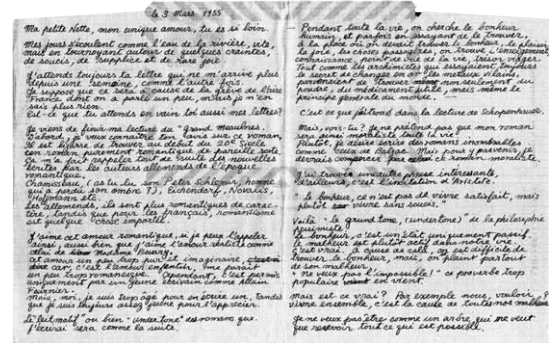 le 3 Mars 1955
Ma petite Nette, mon unique amour, tu es si loin.
Mes jours s'écoulent comme l'eau de la rivière, vite,
mais en tournoyant autour de quelques craintes,
de soucis, de supplice et de rare joie
J'attends toujours la lettre qui ne m'arrive plus
depuis une semaine, comme l'autre fois
Je suppose que ce sera à cause de la grève de l'aire
France dont on a parlé un peu, mais je n'en
sais plus rien.
Est-ce que tu attends en vain toi aussi mes lettres?
Je viens de finir ma lecture du "grand Meaulnes".
D'abord, je veux connaître ton avis sur ce roman.
Il est bizarre de trouver au début du 20e Siècle
un roman purement romantique de pareille sorte.
Ça m'a fait rappeler tout de suite des nouvelles
écrites par les auteurs allemands de l'époque
romantique.
Chamisso (as tu lu son Peter Schlemihl, homme
qui a perdu son ombre?), Eichendorf, Novalis
Hoffmann etc.
Les allemands, ils sont plus romantiques de carac-
tère, tandis que pour les français, romantisme
est quelque chose emparté
J'aime cet amour romantique, si je peux l'appeler
ainsi, aussi bien que j'aime l'amour réaliste comme
celui de Madame Bovary.
Cet amour un peu trop pur et imaginaire,
dire car, c'est l'amour enfantin, me paraît
un peu trop romanesque. Cependant, c'est permis
uniquement par un jeune écrivain comme Alain
Fournier.
Mais, moi, je suis trop agé pour en écrire un, tandis
que je suis toujours assez jeune pour l'apprécier.
Le "leitmotif" ou bien "undertone" des romans que
j'écrirai sera comme la suite.
Pendant toute la vie, on cherche le bonheur
humain, et parfois en essayant de le trouver,
à la place où on devait trouver le bonheur, le plaisir,
la joie, les choses passagères, on trouve l'enseignement,
connaissance, point de vue de la vie, trésor
Tout comme les alchimistes qui essayaient toujours
le secret de changer en or les métaux vilains,
parvenaient de trouver non seulement du
poudre, du médicament utile, mais même le
principe générale du monde.
C'est ce que j'ai trouvé dans la lecture de Schopenhauer.
Mais, moi: tu? Je ne prétends pas que mon roman
sera aussi moraliste toute la vie!
Plutôt, je désire écrire des romans
comme
devrais commencer par ce roman moraliste.
J'ai trouvé une autre phrase intéressante,
d'ailleurs, c'est l'incitation d'Aristote.
Le bonheur, ce n'est pas de vivre satisfait, mais
plutôt de vivre sans soucis,
Voilà "le grand tone, (undertone)" de la philosophie
pessimiste!
Le bonheur, c'est un état uniquement passif.
Le malheur est plutôt actif dans notre vie.
C'est vrai. A cause de cela, on est difficile de
trouver le bonheur, mais, on plaint partout
de son malheur.
"Ne veux pas l'impossible!" ce proverbe trop
populaire en vient.
Mais est ce vrai? Par exemple nous, vouloir
vivre ensemble, c'est la cause de toutes nos
Je ne veux pas être comme un arbre qui ne veut
que recevoir tout ce qui est possible.